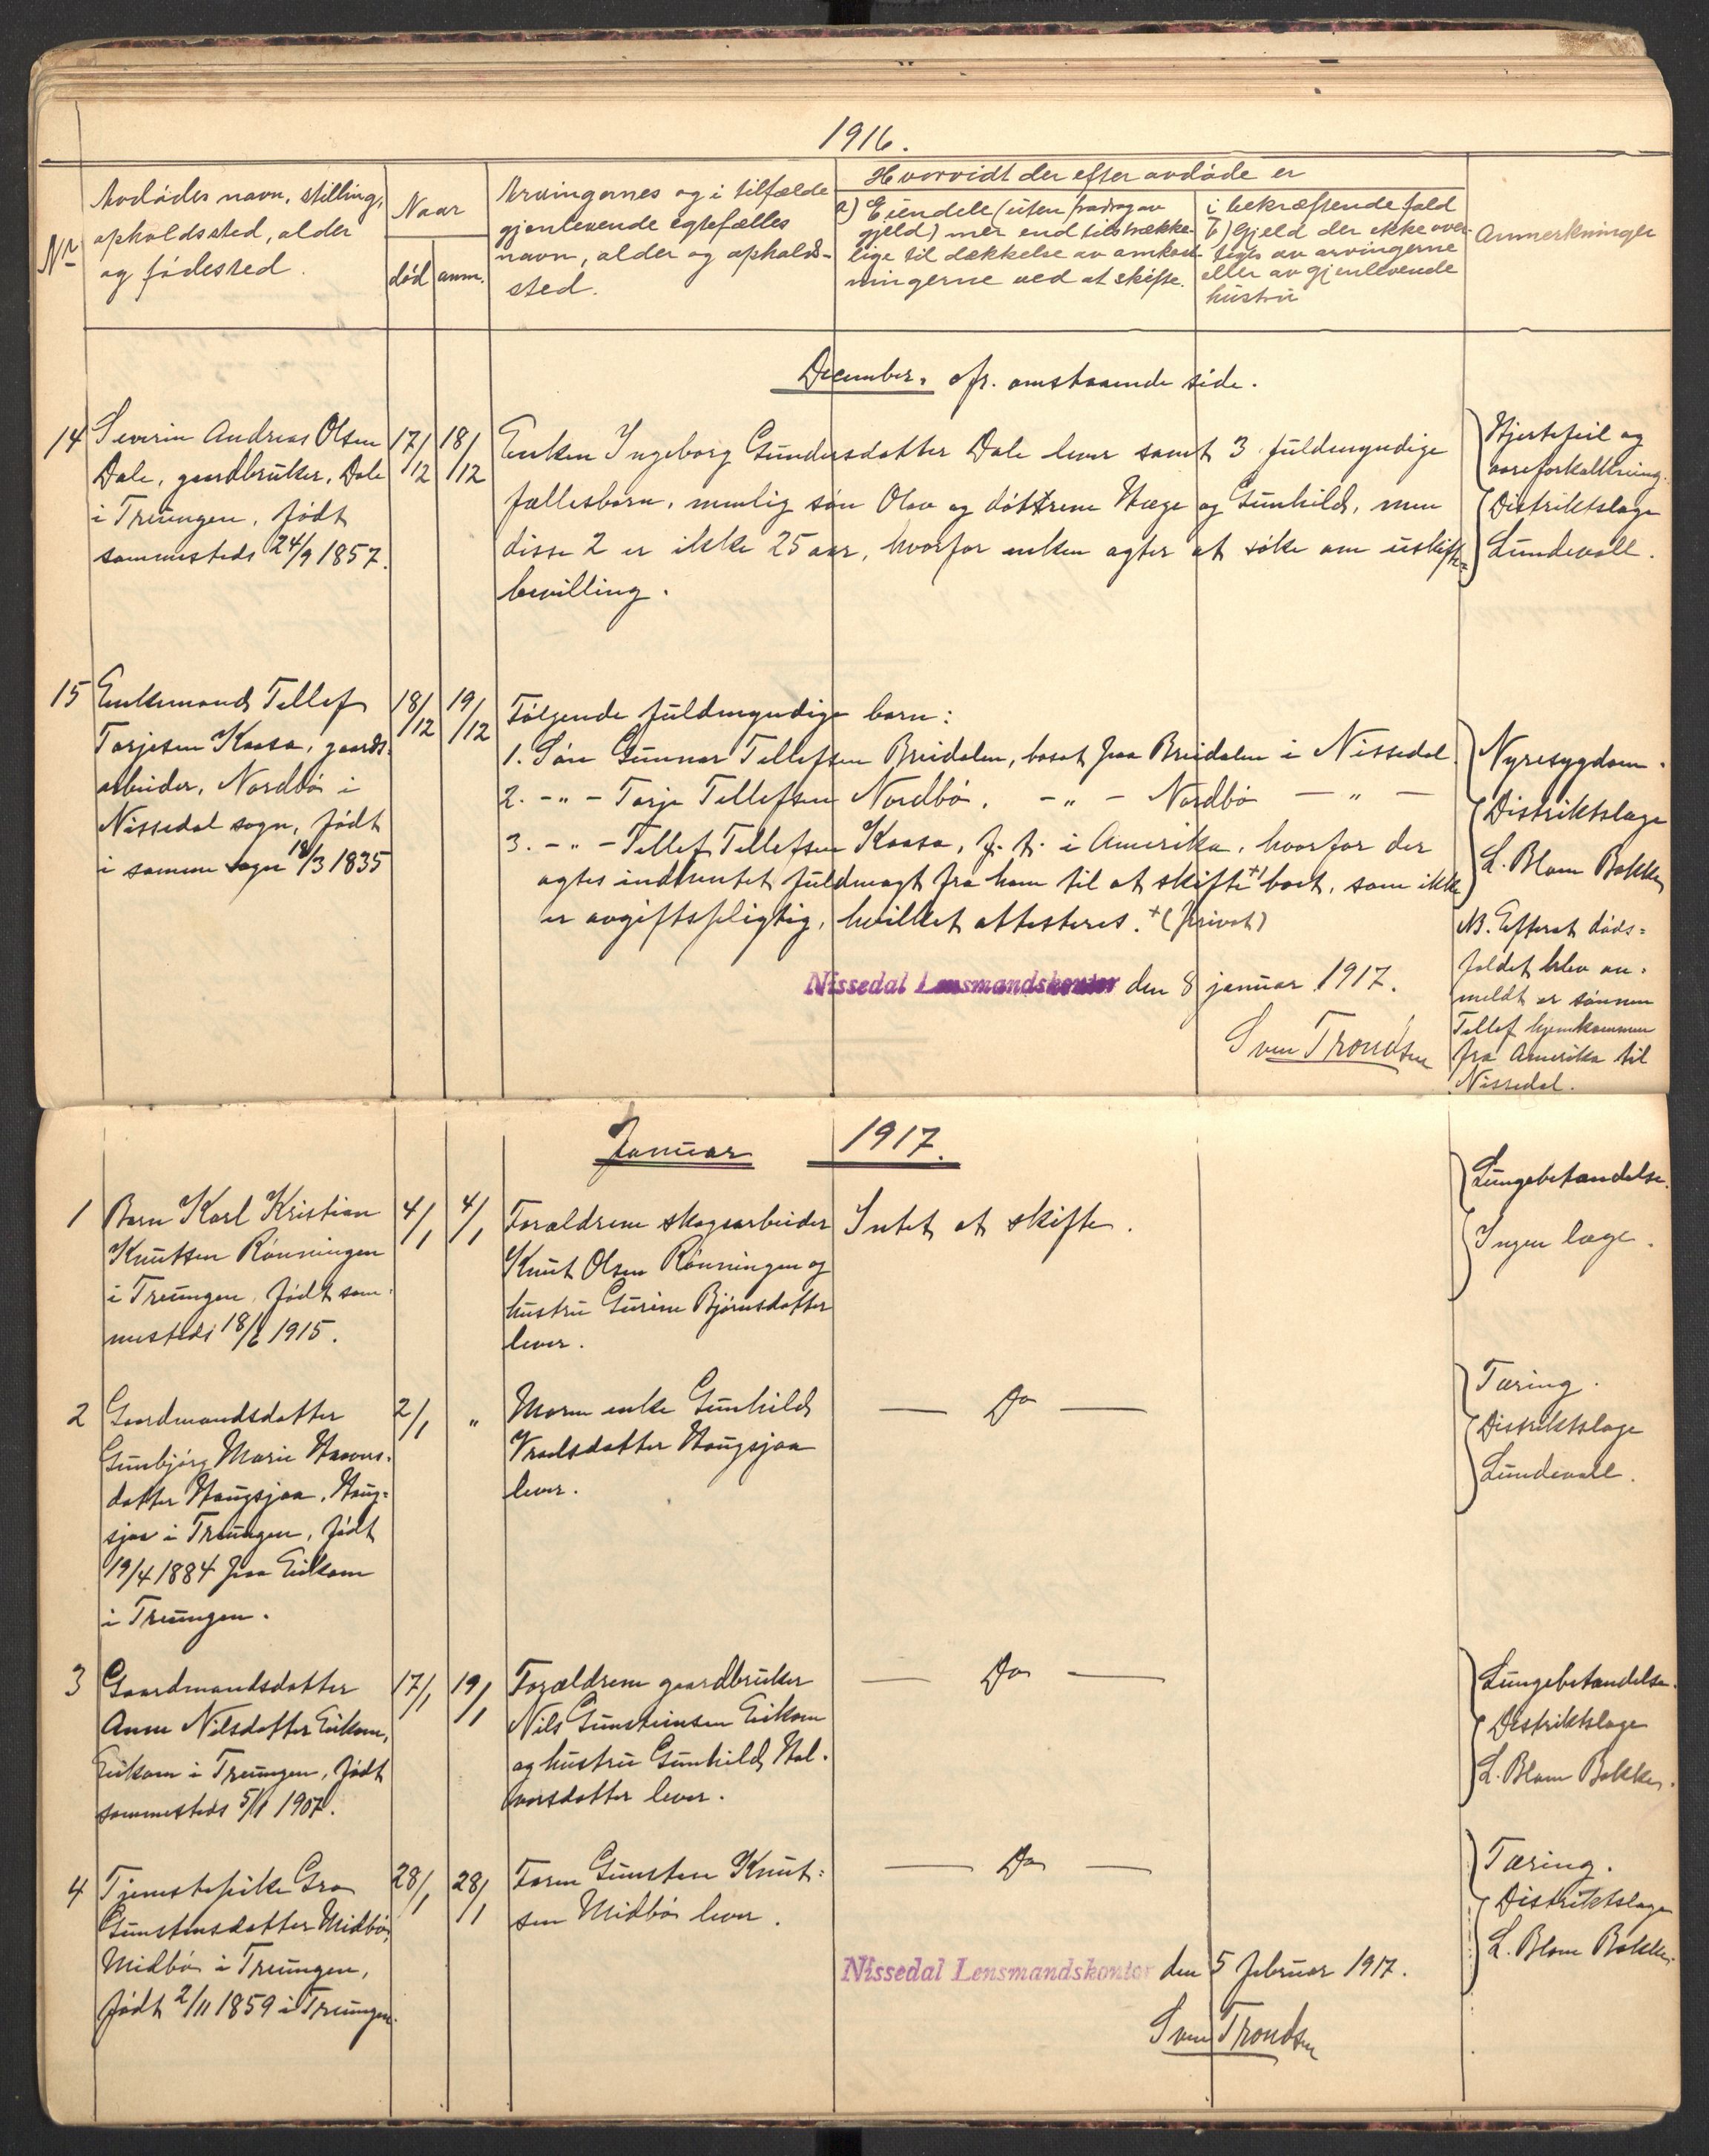 1916.
Nr
Avdødes navn, stilling,
opholdssted, alder
og fødested.
Naar
død
anm.
Arvingernes og i tilfælde
gjenlevende egtefælles
navn, alder og opholds-
sted.
Hvorvidt der efter avdøde er
a) Eiendele (uten fradrag av
gjeld) mer end tilstrække-
lige til dækkelse av omkost-
ningerne ved et skifte.
i bekræftende fald
b) Gjeld der ikke over-
tages av arvingerne
eller av gjenlevende
hustru
Anmerkninger
December. cfr. omstaaende side.
14 Severin Andreas Olsen
Dale, gaardbruker, Dale
i Treungen, født
sammesteds 24/9 1857.
17/12 18/12
Enken Ingeborg Gundersdatter Dale lever samt 3 fuldmyndige
fællesbarn, nemlig søn Olav og døttrene Hæge og Gunhild, men
disse 2 er ikke 25 aar, hvorfor enken agter at søke om uskifte=
bevilling.
Hjertefeil og
aareforkalkning.
Distriktslæge
Lundevall.
15 Enkemand Tellef
Tarjesen Kaasa, gaards-
arbeider, Nordbø i
Nissedal sogn, født
i samme sogn 18/3 1835
18/12 19/12
Følgende fuldmyndige barn:
1. Søn Gunnar Tellefsen Breidalen, bosat paa Breidalen i Nissedal.
2. -"- Tarje Tellefsen Nordbø, -"- Nordbø -"-
3. -"- Tellef Tellefsen Kaasa, p. t. i Amerika, hvorfor der
agtes indhentet fuldmagt fra ham til at skifte +) boet, som ikke
er avgiftspligtig, hvilket attesteres. + (privat)
Nissedal Lensmandskontor den 8 januar 1917.
Sven Trondsen
Nyresygdom.
Distriktslæge
L. Blom Bakke
NB. Efterat døds=
faldet blev an=
meldt er sønnen
Tellef hjemkommen
fra Amerika til
Nissedal.
Januar 1917.
1 Barn Karl Kristian
Knutsen Rønningen
i Treungen, født sam-
mesteds 18/6 1915.
4/1 4/1
Forældrene skogsarbeider
Knut Olsen Rønningen og
hustru Gurine Bjørnsdatter
lever.
Intet at skifte.
Lungebetændelse.
Ingen læge.
2 Gaardmandsdatter
Gunbjørg Marie Haavors-
datter Haugsjaa, Haug=
sjaa i Treungen, født
19/4 1884 paa Eikom
i Treungen.
2/1 "
Moren enke Gunhild
Vraalsdatter Haugsjaa
lever.
— Do —
Tæring.
Distriktslæge
Lundevall.
3 Gaardmandsdatter
Anne Nilsdatter Eikom,
Eikom i Treungen, født
sammesteds 5/1 1907.
17/1 19/1
Forældrene gaardbruker
Nils Gunsteinsen Eikom
og hustru Gunhild Hal-
vorsdatter lever.
— Do —
Lungebetændelse.
Distriktslæge
L. Blom Bakke.
4 Tjenestepike Gro
Gunstensdatter Midbø,
Midbø i Treungen,
født 2/11 1859 i Treungen.
28/1 28/1
Faren Gunsten Knut=
sen Midbø lever.
— Do —
Tæring.
Distriktslæge
L. Blom Bakke.
Nissedal Lensmandskontor den 5 februar 1917.
Sven Trondsen